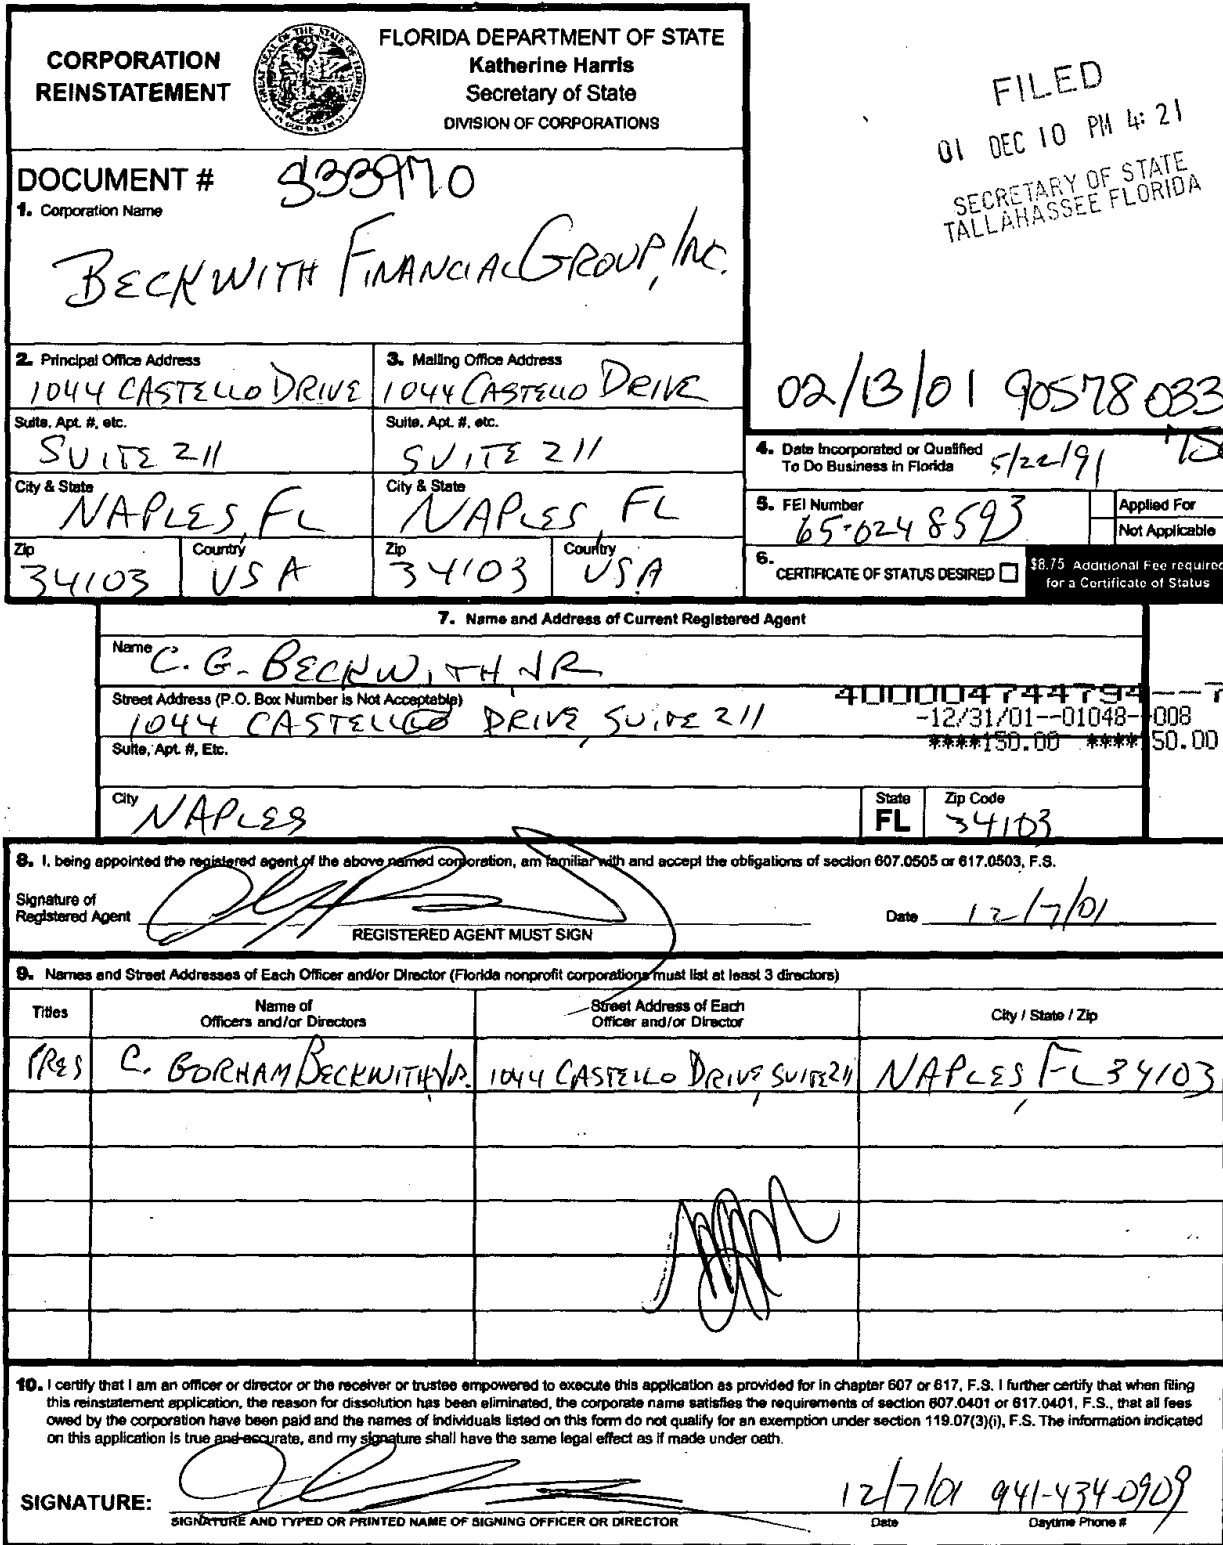 CORPORATION
REINSTATEMENT
FLORIDA DEPARTMENT OF STATE
Katherine Harris
Secretary of State
DIVISION OF CORPORATIONS
FILED
01 DEC 10 PM 4:21
SECRETARY OF STATE
TALLAHASSEE FLORIDA
DOCUMENT # S33970
1. Corporation Name
BECKWITH FINANCIAL GROUP, INC.
2. Principal Office Address
1044 CASTELLO DRIVE
Suite, Apt. #, etc.
SUITE 211
City & State
NAPLES, FL
Zip
34103
Country
USA
3. Mailing Office Address
1044 CASTELLO DRIVE
Suite, Apt. #, etc.
SUITE 211
City & State
NAPLES, FL
Zip
34103
Country
USA
02/13/01 90578 033
4. Date Incorporated or Qualified
To Do Business in Florida 5/22/91
5. FEI Number
65-0248593
Applied For
Not Applicable
6.
CERTIFICATE OF STATUS DESIRED
$8.75 Additional Fee required
for a Certificate of Status
7. Name and Address of Current Registered Agent
Name
C. G. BECKWITH, JR
Street Address (P.O. Box Number is Not Acceptable)
1044 CASTELLO DRIVE, SUITE 211
400004744794--7
-12/31/01--01048--008
****150.00 ****150.00
Suite, Apt. #, Etc.
City
NAPLES
State
FL
Zip Code
34103
8. I, being appointed the registered agent of the above named corporation, am familiar with and accept the obligations of section 607.0505 or 617.0503, F.S.
Signature of
Registered Agent
REGISTERED AGENT MUST SIGN
Date 12/7/01
9. Names and Street Addresses of Each Officer and/or Director (Florida nonprofit corporations must list at least 3 directors)
Titles
Name of
Officers and/or Directors
Street Address of Each
Officer and/or Director
City / State / Zip
PRES C. GORHAM BECKWITH, JR. 1044 CASTELLO DRIVE, SUITE 211 NAPLES, FL 34103
10. I certify that I am an officer or director or the receiver or trustee empowered to execute this application as provided for in chapter 607 or 617, F.S. I further certify that when filing
this reinstatement application, the reason for dissolution has been eliminated, the corporate name satisfies the requirements of section 607.0401 or 617.0401, F.S., that all fees
owed by the corporation have been paid and the names of individuals listed on this form do not qualify for an exemption under section 119.07(3)(i), F.S. The information indicated
on this application is true and accurate, and my signature shall have the same legal effect as if made under oath.
SIGNATURE:
12/7/01 941-434-0909
SIGNATURE AND TYPED OR PRINTED NAME OF SIGNING OFFICER OR DIRECTOR
Date
Daytime Phone #